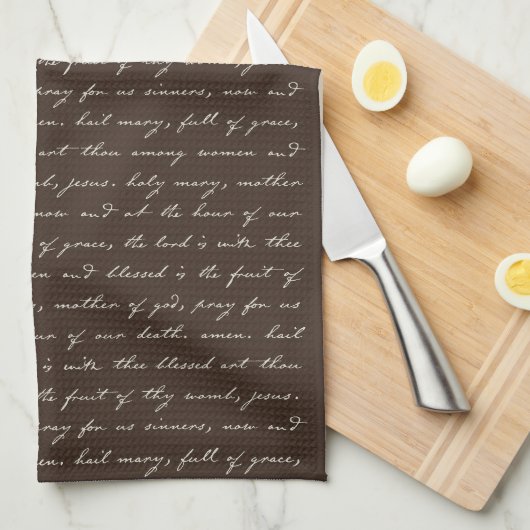 the fruit of thy womb,
pray for us sinners, now and
en. hail mary, full of grace,
art thou among women and
mb, jesus. holy mary, mother
now and at the hour of our
of grace, the lord is with thee
en and blessed is the fruit of
, mother of god, pray for us
ur of our death. amen. hail
is with thee blessed art thou
the fruit of thy womb, jesus.
pray for us sinners, now and
en. hail mary, full of grace,